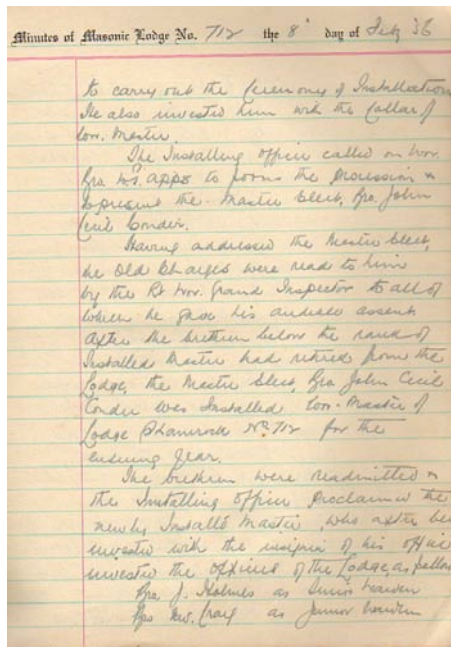 Minutes of Masonic Lodge No. 712 the 8" day of July 36
to carry out the Ceremony of Installation
He also invested him with the Collar of
Wor. Master
The Installing Officer called on Wor.
Bro. to form the procession &
to present the Master Elect, Bro. John
Cecil Conder.
Having addressed the Master Elect,
the Old Charges were read to him
by the Rt Wor. Grand Inspector to all of
which he gave his audible assent
After the brethren below the rank of
Installed Master had retired from the
Lodge, the Master Elect, Bro John Cecil
Conder was Installed Wor. Master of
Lodge Shamrock No 712 for the
ensuing year.
The brethren were readmitted &
the Installing Officer proclaimed the
newly Installed Master, who after be
invested with the insignia of his office
invested the officers of the Lodge, as follow
Bro. J. Holmes as Senior Warden
Craig as Junior Warden